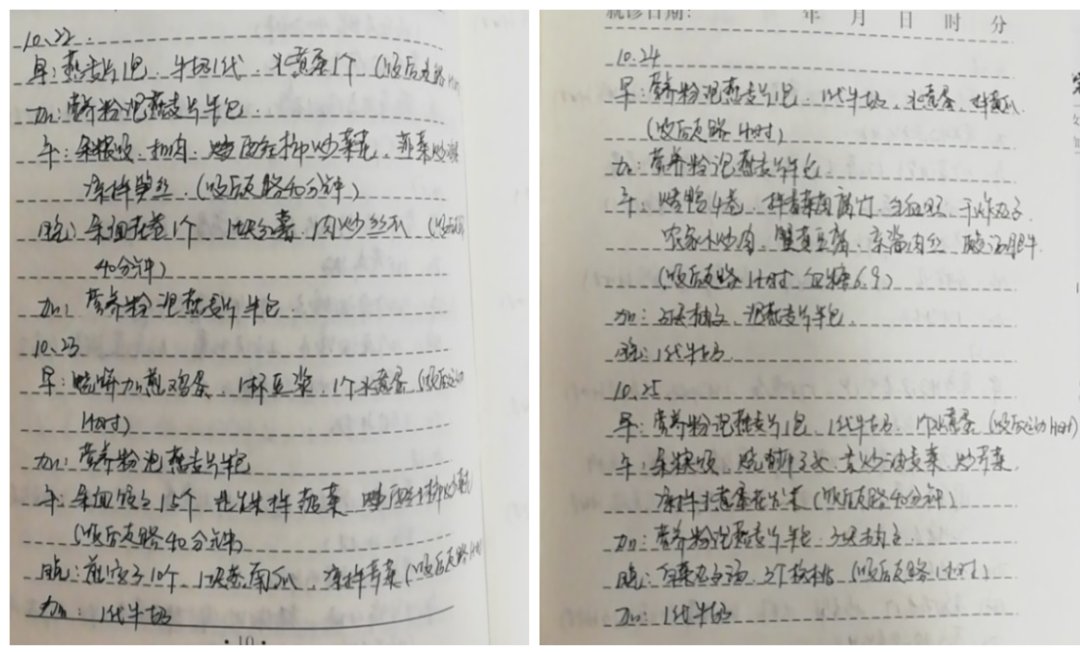 10.22.
早：燕麦片1包、牛奶1代、水煮蛋1个（饭后走路
加：营养粉泡燕麦片半包
午：杂粮饭、扣肉、西红柿炒菜花、韭菜炒
凉拌笋丝、（饭后走路40分钟）
晚：杂面花卷1个、1块、肉炒丝瓜（饭后
40分钟）
加：营养粉泡燕麦片半包
10.23
早：烧饼加煎鸡蛋、1杯豆浆、1个水煮蛋（饭后运动
1小时）
加：营养粉泡燕麦片半包
午：杂面馒头1.5个、拌蔬菜、西红柿炒
（饭后走路40分钟）
晚：煎饺子10个、1块蒸南瓜、凉拌芹菜（饭后走路
加：1代牛奶
·10·
就诊日期： 年 月 日 时 分
10.24
早：营养粉泡燕麦片1包、1代牛奶、水煮蛋、拌黄瓜
（饭后走路1小时）
加：营养粉泡燕麦片半包
午：烤鸭4卷、拌腐竹、干炸丸子
农家小炒肉、蟹黄豆腐、京酱肉丝、酸汤肥牛
（饭后走路1小时 血糖6.9）
加：3块柚子、泡燕麦片半包、
晚：1代牛奶
10.25
早：营养粉泡燕麦片1包、1代牛奶、1个水煮蛋（饭后运动1小时）
午：杂粮饭、清炒油麦菜、炒芹菜、
凉拌水煮蛋花菜（饭后走路40分钟）
加：营养粉泡燕麦片半包、3块柚子
晚：白菜丸子汤、3个核桃（饭后走路1小时）
加：1代牛奶